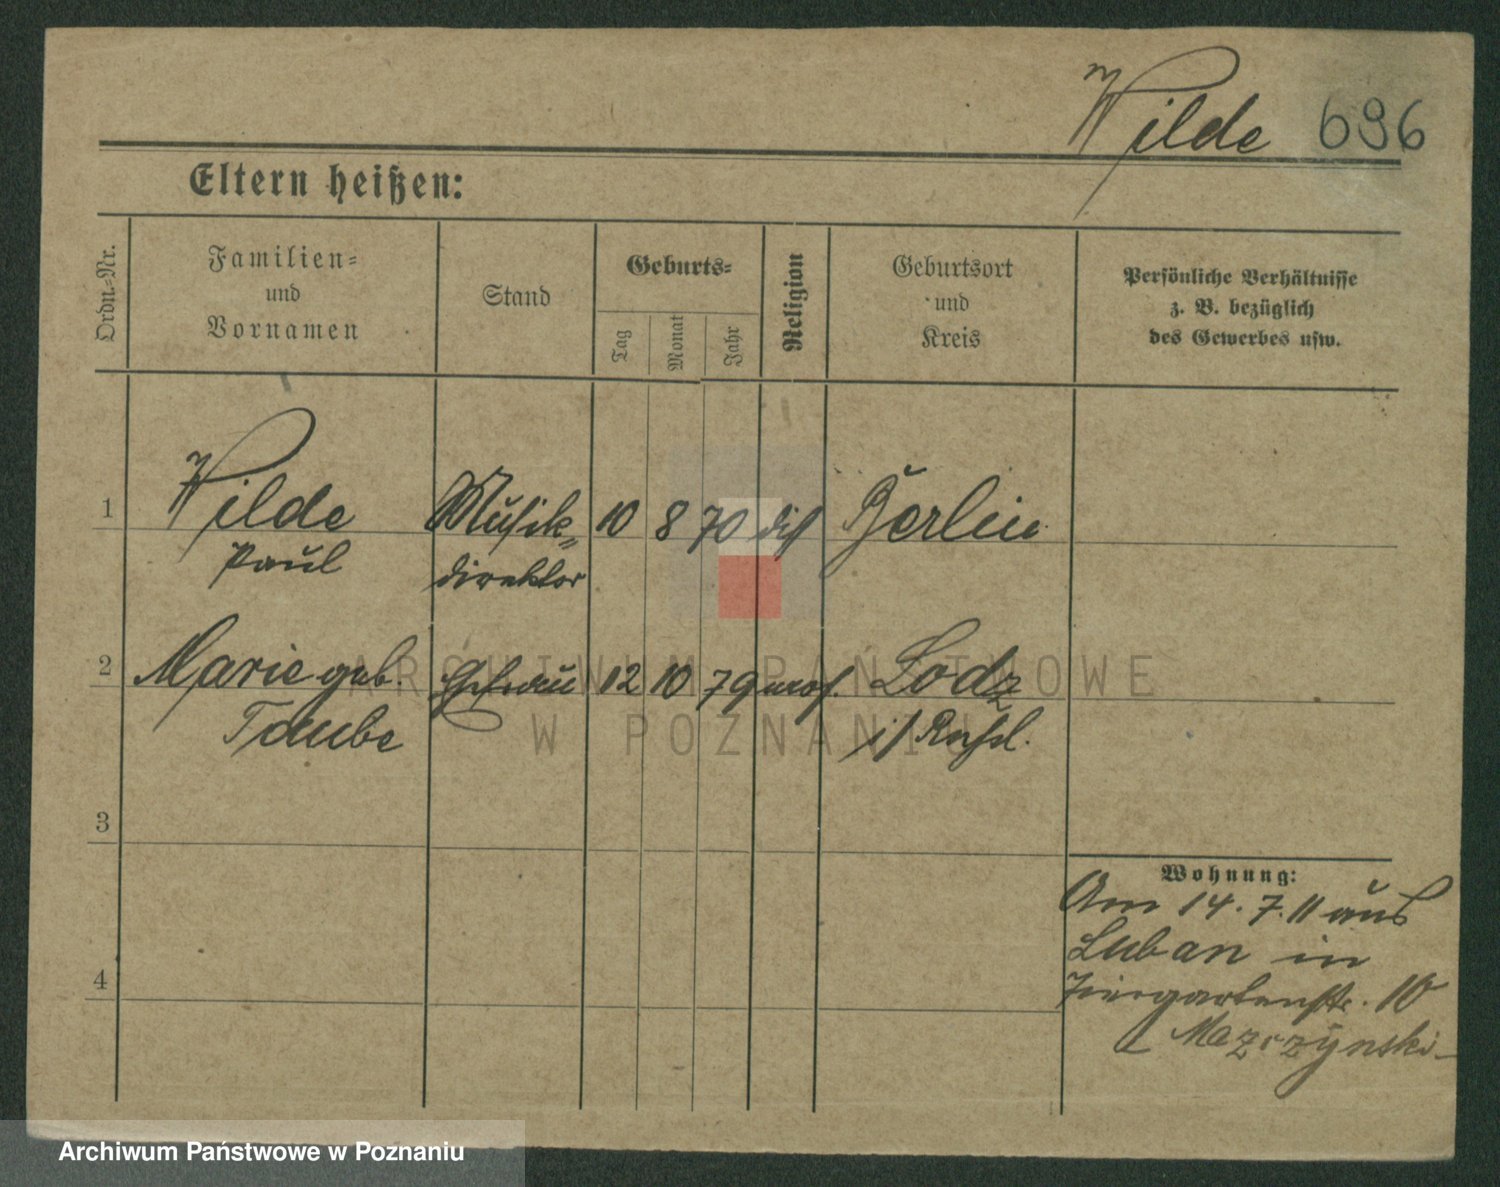 Wilde 696
Eltern heißen:
Ordn.-Nr.
Familien-
und
Vornamen
Stand
Geburts-
Tag
Monat
Jahr
Religion
Geburtsort
und
Kreis
Persönliche Verhältnisse
z. B. bezüglich
des Gewerbes usw.
1 Wilde Musik- 10 8 70 diss Berlin
Paul direktor
2 Marie geb. Ehefrau 12 10 79 mos. Lodz
Taube i/ Russl.
3
4
Wohnung:
Am 14. 7. 11 aus
Luban in
Tiergartenstr. 10
ARCHIWUM PAŃSTWOWE
W POZNANIU
Archiwum Państwowe w Poznaniu